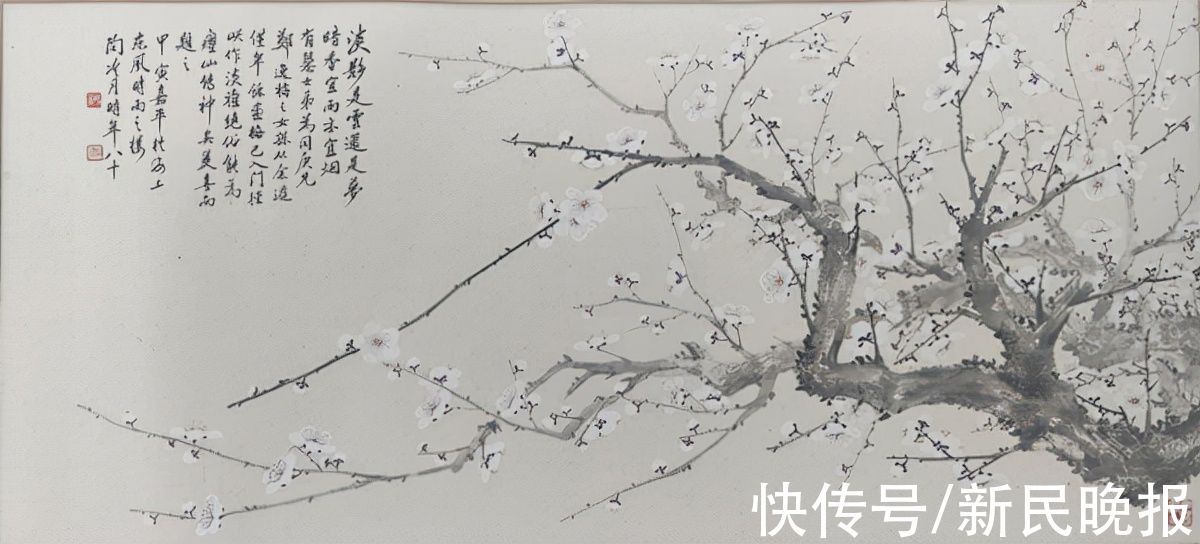 淡影是雲還是夢
暗香宜雨亦宜烟
有慧女弟為同庚兄
鄭逸梅之女孫从余遊
僅年餘畫梅已入門徑
作淡雅絕俗能為
癯仙傳神矣喜而
題之
甲寅嘉平於海上
東風時雨之樓
陶冷月時年八十
快传号/新民晚报